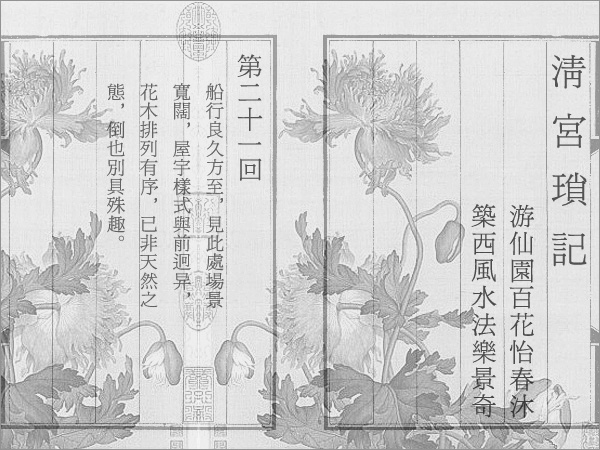 清宮瑣記
游仙園百花怡春沐
築西風水法樂景奇
第二十一回
船行良久方至，見此處場景
寬闊，屋宇樣式與前迥异，
花木排列有序，已非天然之
態，倒也別具殊趣。